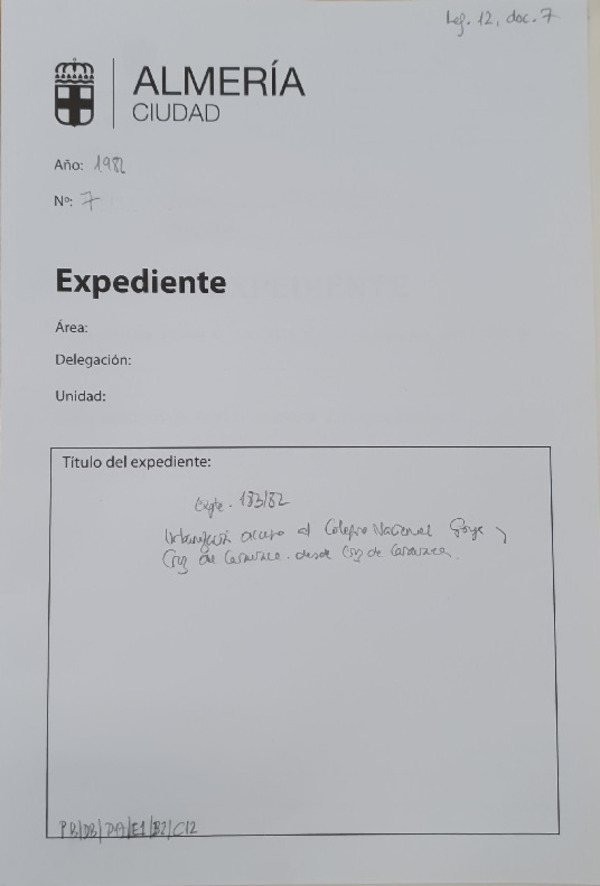 Leg. 12, doc. 7
ALMERÍA
CIUDAD
Año: 1982
Nº: 7
Expediente
Área:
Delegación:
Unidad:
Título del expediente:
Expte. 183/82
Urbanización acceso al Colegio Nacional Goya y
Cruz de Caravaca. desde Cruz de Caravaca.
PB/DB/DA/E1/B2/C12